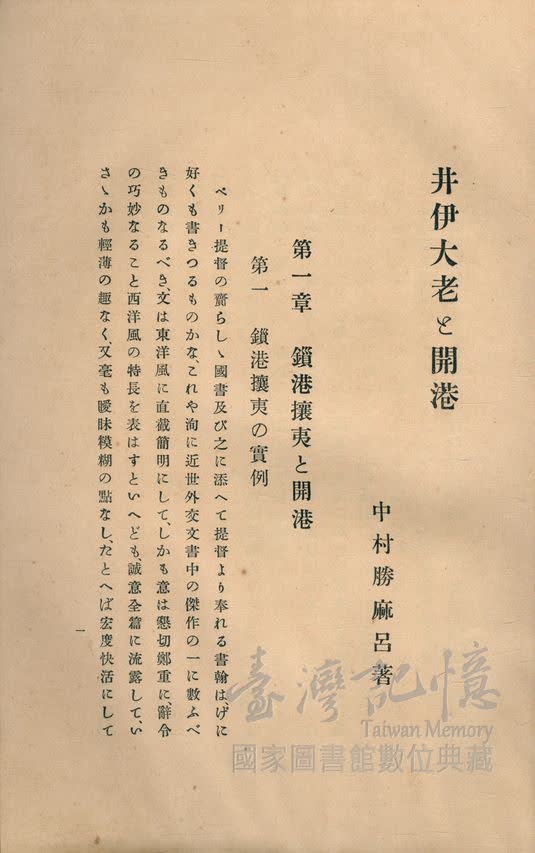 井伊大老と開港
中村勝麻呂著
第一章　鎖港攘夷と開港
第一　鎖港攘夷の實例
ペリー提督の齎らしゝ國書及び之に添へて提督より奉れる書翰は、げに
好くも書きつるものかな、これや洵に近世外交文書中の傑作の一に數ふべ
きものなるべき、文は東洋風に直截簡明にして、しかも意は懇切鄭重に、辭令
の巧妙なること西洋風の特長を表はすといへども、誠意全篇に流露して、い
さゝかも輕薄の趣なく、又毫も曖昧糢糊の點なし、たとへば宏度快活にして
一
臺灣記憶
Taiwan Memory
國家圖書館數位典藏